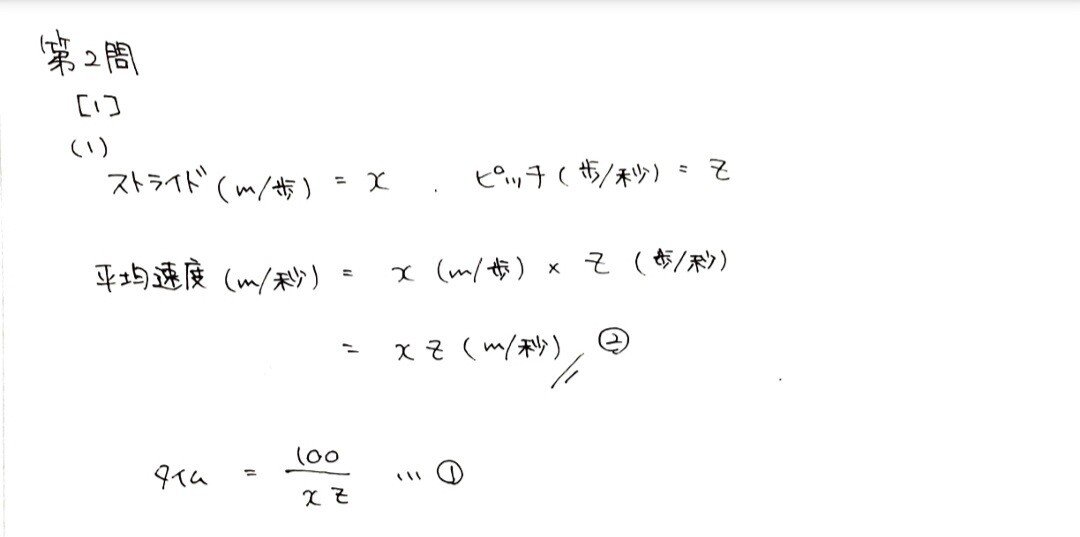 第2問
[1]
(1)
ストライド(m/歩) = x . ピッチ(歩/秒) = z
平均速度(m/秒) = x (m/歩) × z (歩/秒)
= xz (m/秒) ②
タイム = 100/xz … ①